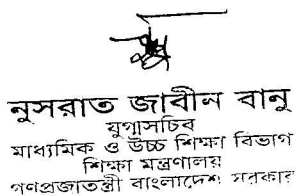 নুসরাত জাবীন বানু
যুগ্মসচিব
মাধ্যমিক ও উচ্চ শিক্ষা বিভাগ
শিক্ষা মন্ত্রণালয়
গণপ্রজাতন্ত্রী বাংলাদেশ সরকার